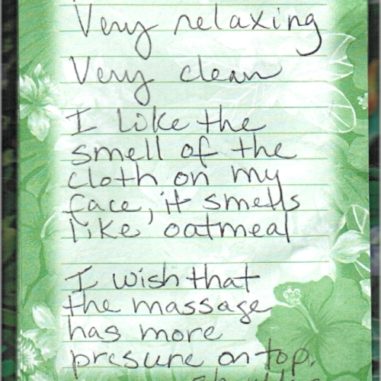 Very relaxing
Very clean
I like the
smell of the
cloth on my
face, it smells
like oatmeal
I wish that
the massage
has more
presure on top.